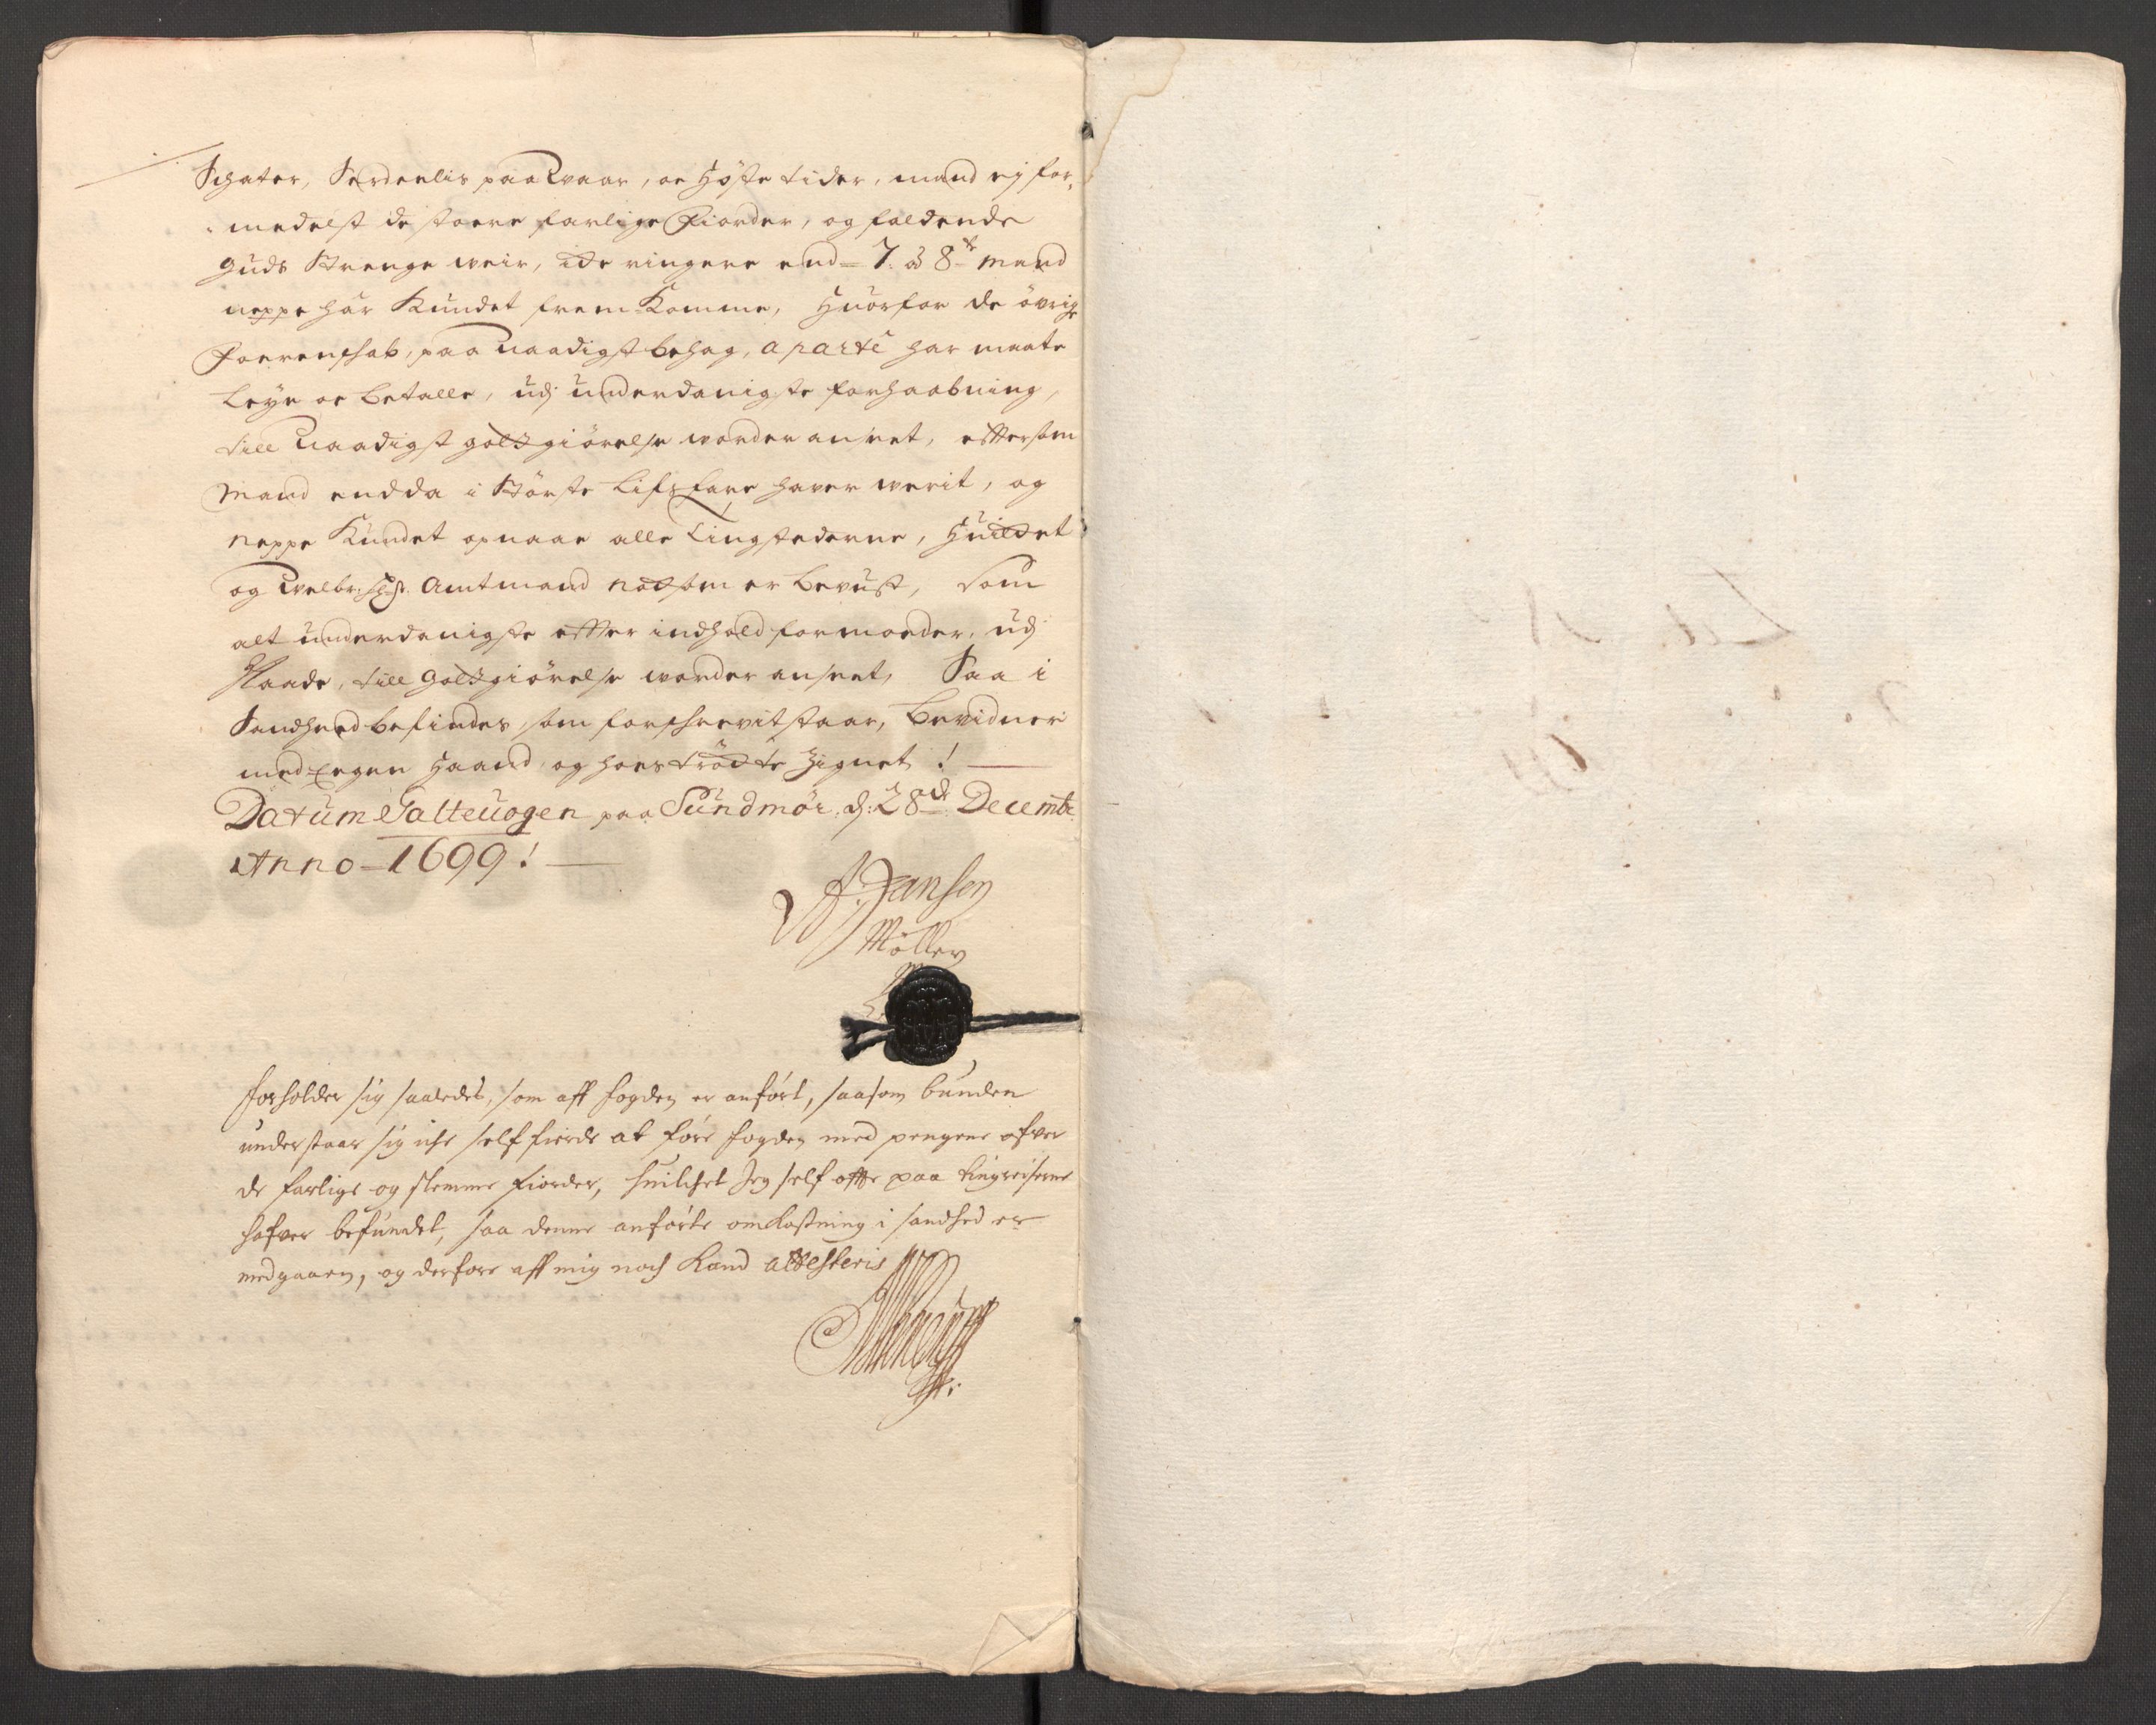 Schater, Serdeelis paa Vaar, oc Høste tider, mand ej for,
medelst de stoere farlige Fiorder, og faldende
Guds Strenge weir, iche ringere end 7. à 8te mand
neppe har Kundet frem Komme, Huorfor de övrige
Foerenschab, paa Naadigst behag, a parte har maate
Leye oc betalle, udj underdanigste forhaabning,
till Naadigst goltgiörelse worder anseet, effersom
Mand endda i Störste Lifsfare haver werit, og
neppe Kundet opnaae alle Tingstederne, Huilchet
og Welbr: Hr: Amtmand nochsom er bevust, som
alt underdanigste effter indhold formoeder, udj
Naade, till goltgiörelse worder anseet, Saa i
Sandhed befindes, som forschrevit staar, Bevidner
med Eegen Haand, og hoes tröchte Zignet!
Datum Salteuogen paa Sundmör, d: 28de Decembr
Anno 1699!
Jansen
Möller
forholder sig saaledes, som aff fogden er anfört, saasom bunden
understaar sig iche self fierde at före fogden med pengene ofver
de farlige og slemme fiorder, huilchet Jeg self offte paa tingreiserne
hafver befundet, saa denne anförte omkostning i sandhed er
medgaaen, og derfore aff mig noch kand attesteris